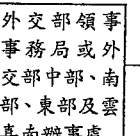 外交部領事
事務局或外
交部中部、南
部、東部及雲
嘉南辦事處